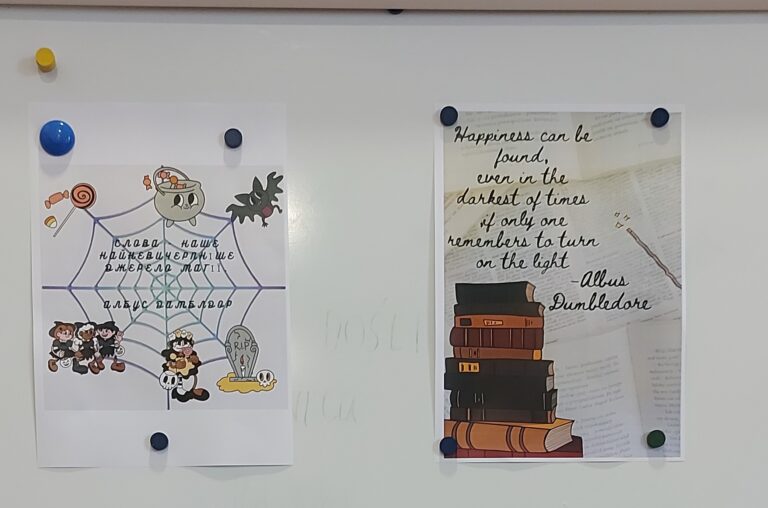 слова - наше
найневичерпніше
джерело магії.
Албус Дамблдор
R.I.P
Happiness can be
found,
even in the
darkest of times
if only one
remembers to turn
on the light
-Albus
Dumbledore